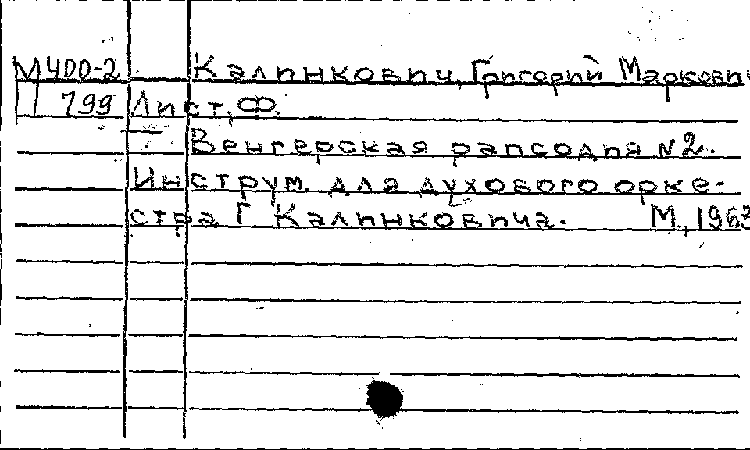 М400-2 Калинкович, Григорий Маркович
799 Лист, Ф.
Венгерская рапсодия №2.
Инструм. для духового орке-
стра Г Калинковича. М, 1963